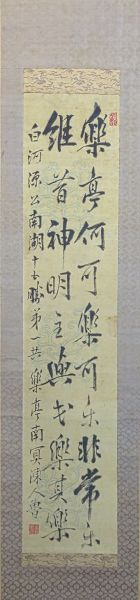 樂亭何可樂可乐非常乐
維昔神明主與民樂其樂
白河源公南湖十七勝第一共樂亭南冥陳人魯